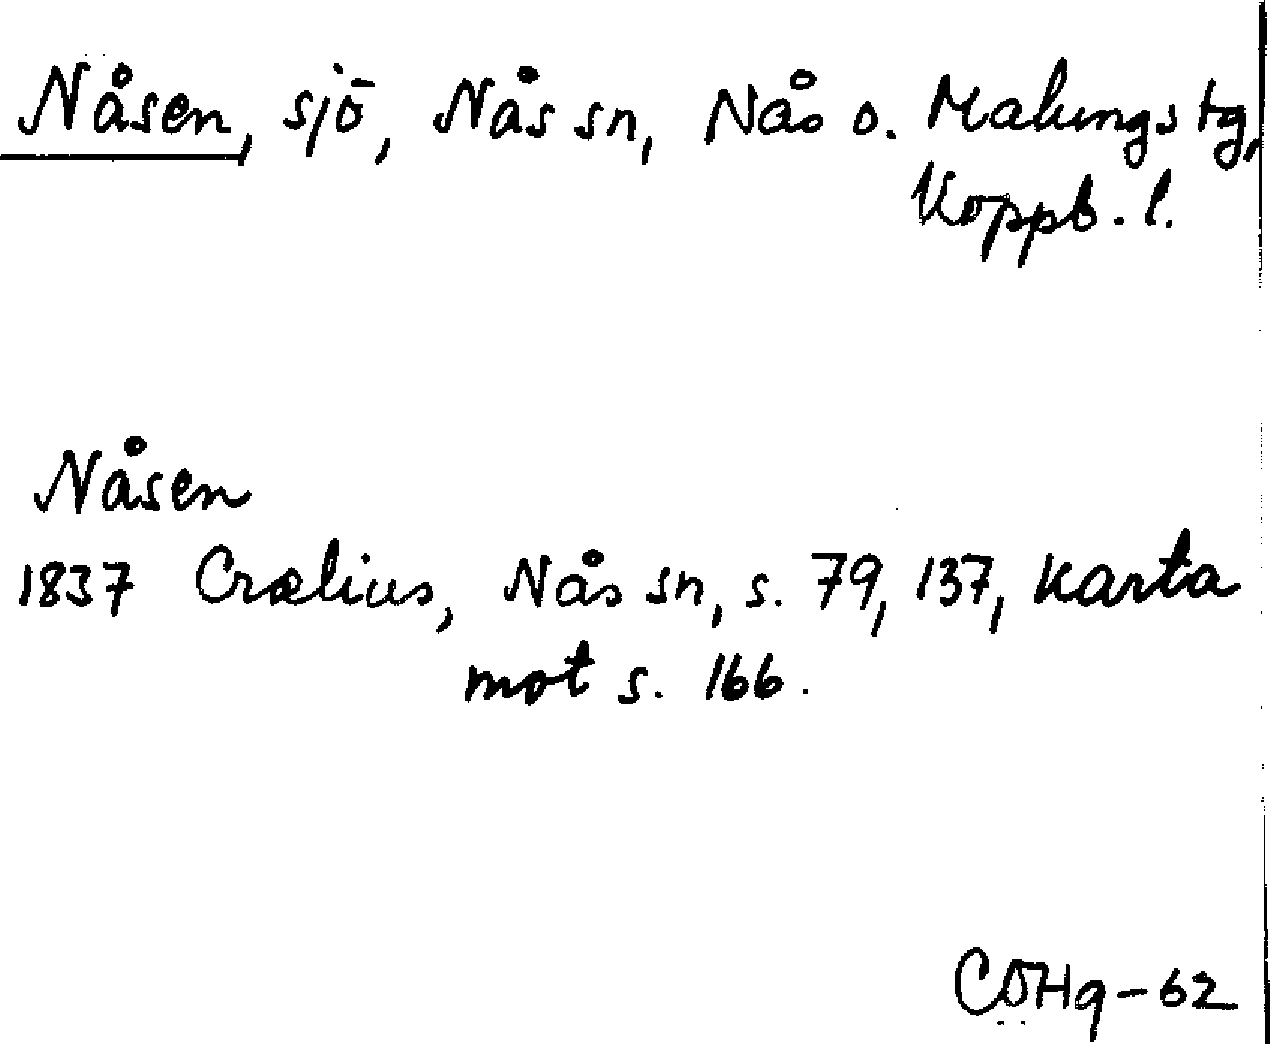 Nåsen, sjö, Nås sn, Nås o. Malungs tg,
Koppb. l.
Nåsen
1837 Crælius, Nås sn, s. 79, 137, karta
mot s. 166.
CÖHg-62